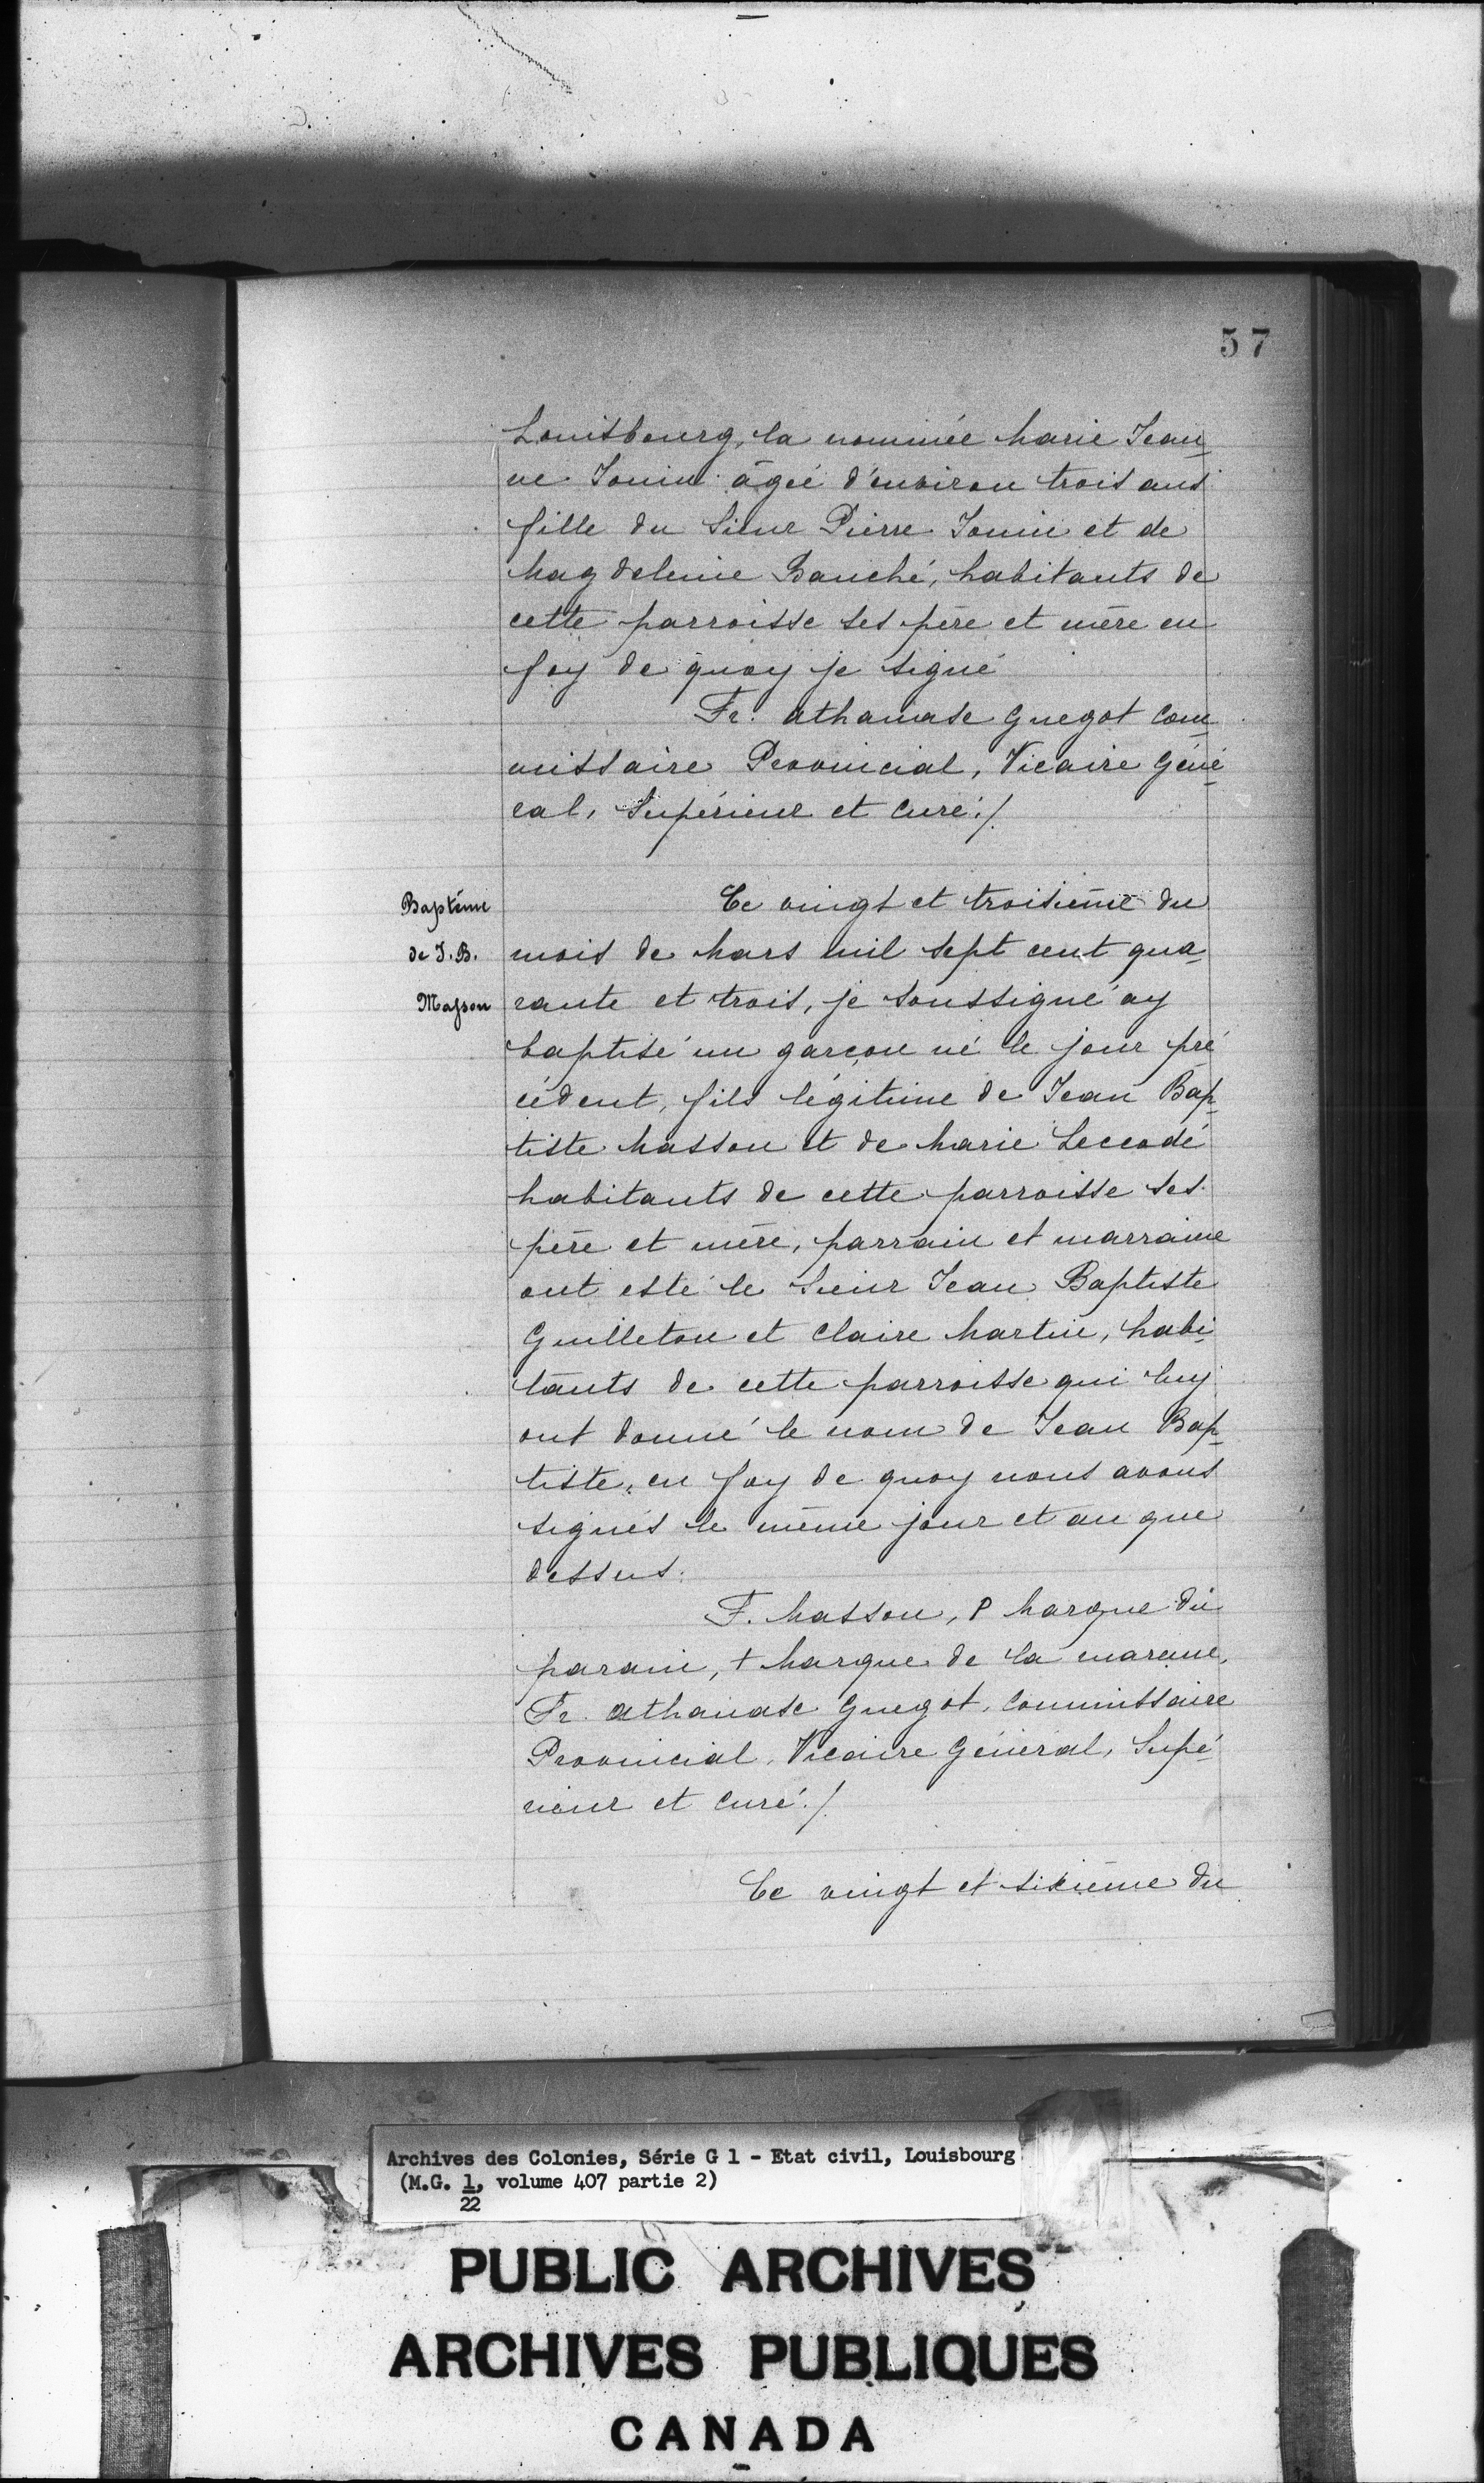 57
Louisbourg, la nommée Marie Jean
ne Jouin âgée d'environ trois ans
fille du Sieur Pierre Jouin et de
Magdeleine Bauché, habitants de
cette parroisse ses père et mère en
foy de quoy je signé
Fr. athanase Guegot Com
missaire Provincial, Vicaire Géné
ral, Supérieur et Curé./.
Baptême
de J. B.
Masson
Ce vingt et troisième du
mois de Mars mil sept cent qua
rante et trois, je soussigné ay
baptisé un garçon né le jour pré
cédent, fils légitime de Jean Bap
tiste Masson et de Marie
habitants de cette parroisse ses
père et mère, parrain et marraine
ont esté le Sieur Jean Baptiste
Guilleton et Claire Martin, habi
tants de cette parroisse qui luy
ont donné le nom de Jean Bap
tiste, en foy de quoy nous avons
signés le même jour et an que
dessus.
F. Masson, P Marque du
parain, + Marque de la maraine,
Fr. athanase Guegot, Commissaire
Provincial, Vicaire Général, Supé
rieur et Curé./.
Ce vingt et sixième du
Archives des Colonies, Série G 1 - Etat civil, Louisbourg
(M.G. 1, volume 407 partie 2)
22
PUBLIC ARCHIVES
ARCHIVES PUBLIQUES
CANADA